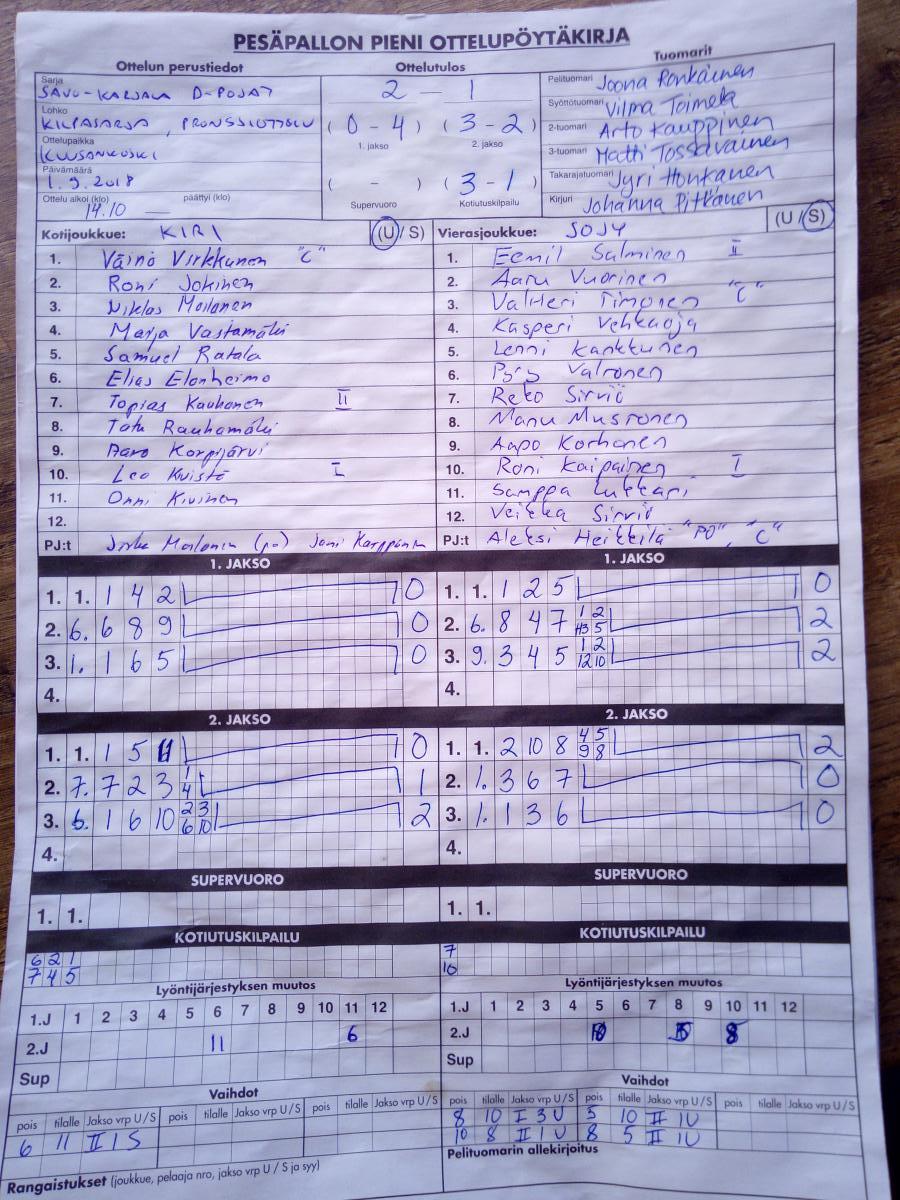 PESÄPALLON PIENI OTTELUPÖYTÄKIRJA
Ottelun perustiedot
Sarja
SAVO-KARJALA D-POJAT
Lohko
KILPASARJA, PRONSSIOTTELU
Ottelupaikka
KUUSANKOSKI
Päivämäärä
1.9.2018
Ottelu alkoi (klo) päättyi (klo)
14.10 —
Ottelutulos
2 - 1
(0 - 4) (3 - 2)
1. jakso 2. jakso
( - ) (3 - 1)
Supervuoro Kotiutuskilpailu
Tuomarit
Pelituomari Joona Ronkainen
Syöttötuomari Vilma Toimela
2-tuomari Arto Kauppinen
3-tuomari Matti Tossavainen
Takarajatuomari Jyri Honkanen
Kirjuri Johanna Pitkänen
Kotijoukkue: KIRI (U/S)
1. Väinö Virkkunen "C"
2. Roni Jokinen
3. Niklas Moilanen
4. Marja Vastamäki
5. Samuel Ratala
6. Elias Elonheimo
7. Topias Kauhanen II
8. Tatu Rauhamäki
9. Aaro Korpijärvi
10. Leo Kvistö I
11. Onni Kivinen
12.
PJ:t Moilanen (po) Jani Karppanen
Vierasjoukkue: SOJY (U/S)
1. Eemil Salminen II
2. Aaru Vuorinen
3. Valtteri Timonen "C"
4. Kasperi Vehkaoja
5. Lenni Kankkunen
6. Pyry Valtonen
7. Reko Sirviö
8. Manu Mustonen
9. Aapo Korhonen
10. Roni Kaipainen I
11. Samppa Lukkari
12. Veikka Sirviö
PJ:t Aleksi Heikkilä "PO", "C"
1. JAKSO
1. 1. 1 4 2 0
2. 6. 6 8 9 0
3. 1. 1 6 5 0
4.
1. JAKSO
1. 1. 1 2 5 0
2. 6. 8 4 7 1 2 5 2
3. 9. 3 4 5 1 2 12 10 2
4.
2. JAKSO
1. 1. 1 5 11 0
2. 7. 7 2 3 1 4 1
3. 6. 1 6 10 2 3 6 10 2
4.
2. JAKSO
1. 1. 2 10 8 4 5 9 8 2
2. 1. 3 6 7 0
3. 1. 1 3 6 0
4.
SUPERVUORO
1. 1.
SUPERVUORO
1. 1.
KOTIUTUSKILPAILU
6 2 1
7 4 5
KOTIUTUSKILPAILU
7
10
Lyöntijärjestyksen muutos
1.J 1 2 3 4 5 6 7 8 9 10 11 12
2.J 11 6
Sup
Lyöntijärjestyksen muutos
1.J 1 2 3 4 5 6 7 8 9 10 11 12
2.J 8
Sup
Vaihdot
pois tilalle Jakso vrp U/S pois tilalle Jakso vrp U/S pois tilalle Jakso vrp U/S
6 11 II 1 S
Vaihdot
pois tilalle Jakso vrp U/S pois tilalle Jakso vrp U/S pois tilalle Jakso vrp U/S
8 10 I 3 U 5 10 II 1U
10 8 II 1 U 8 5 II 1U
Pelituomarin allekirjoitus
Rangaistukset (joukkue, pelaaja nro, jakso vrp U / S ja syy)